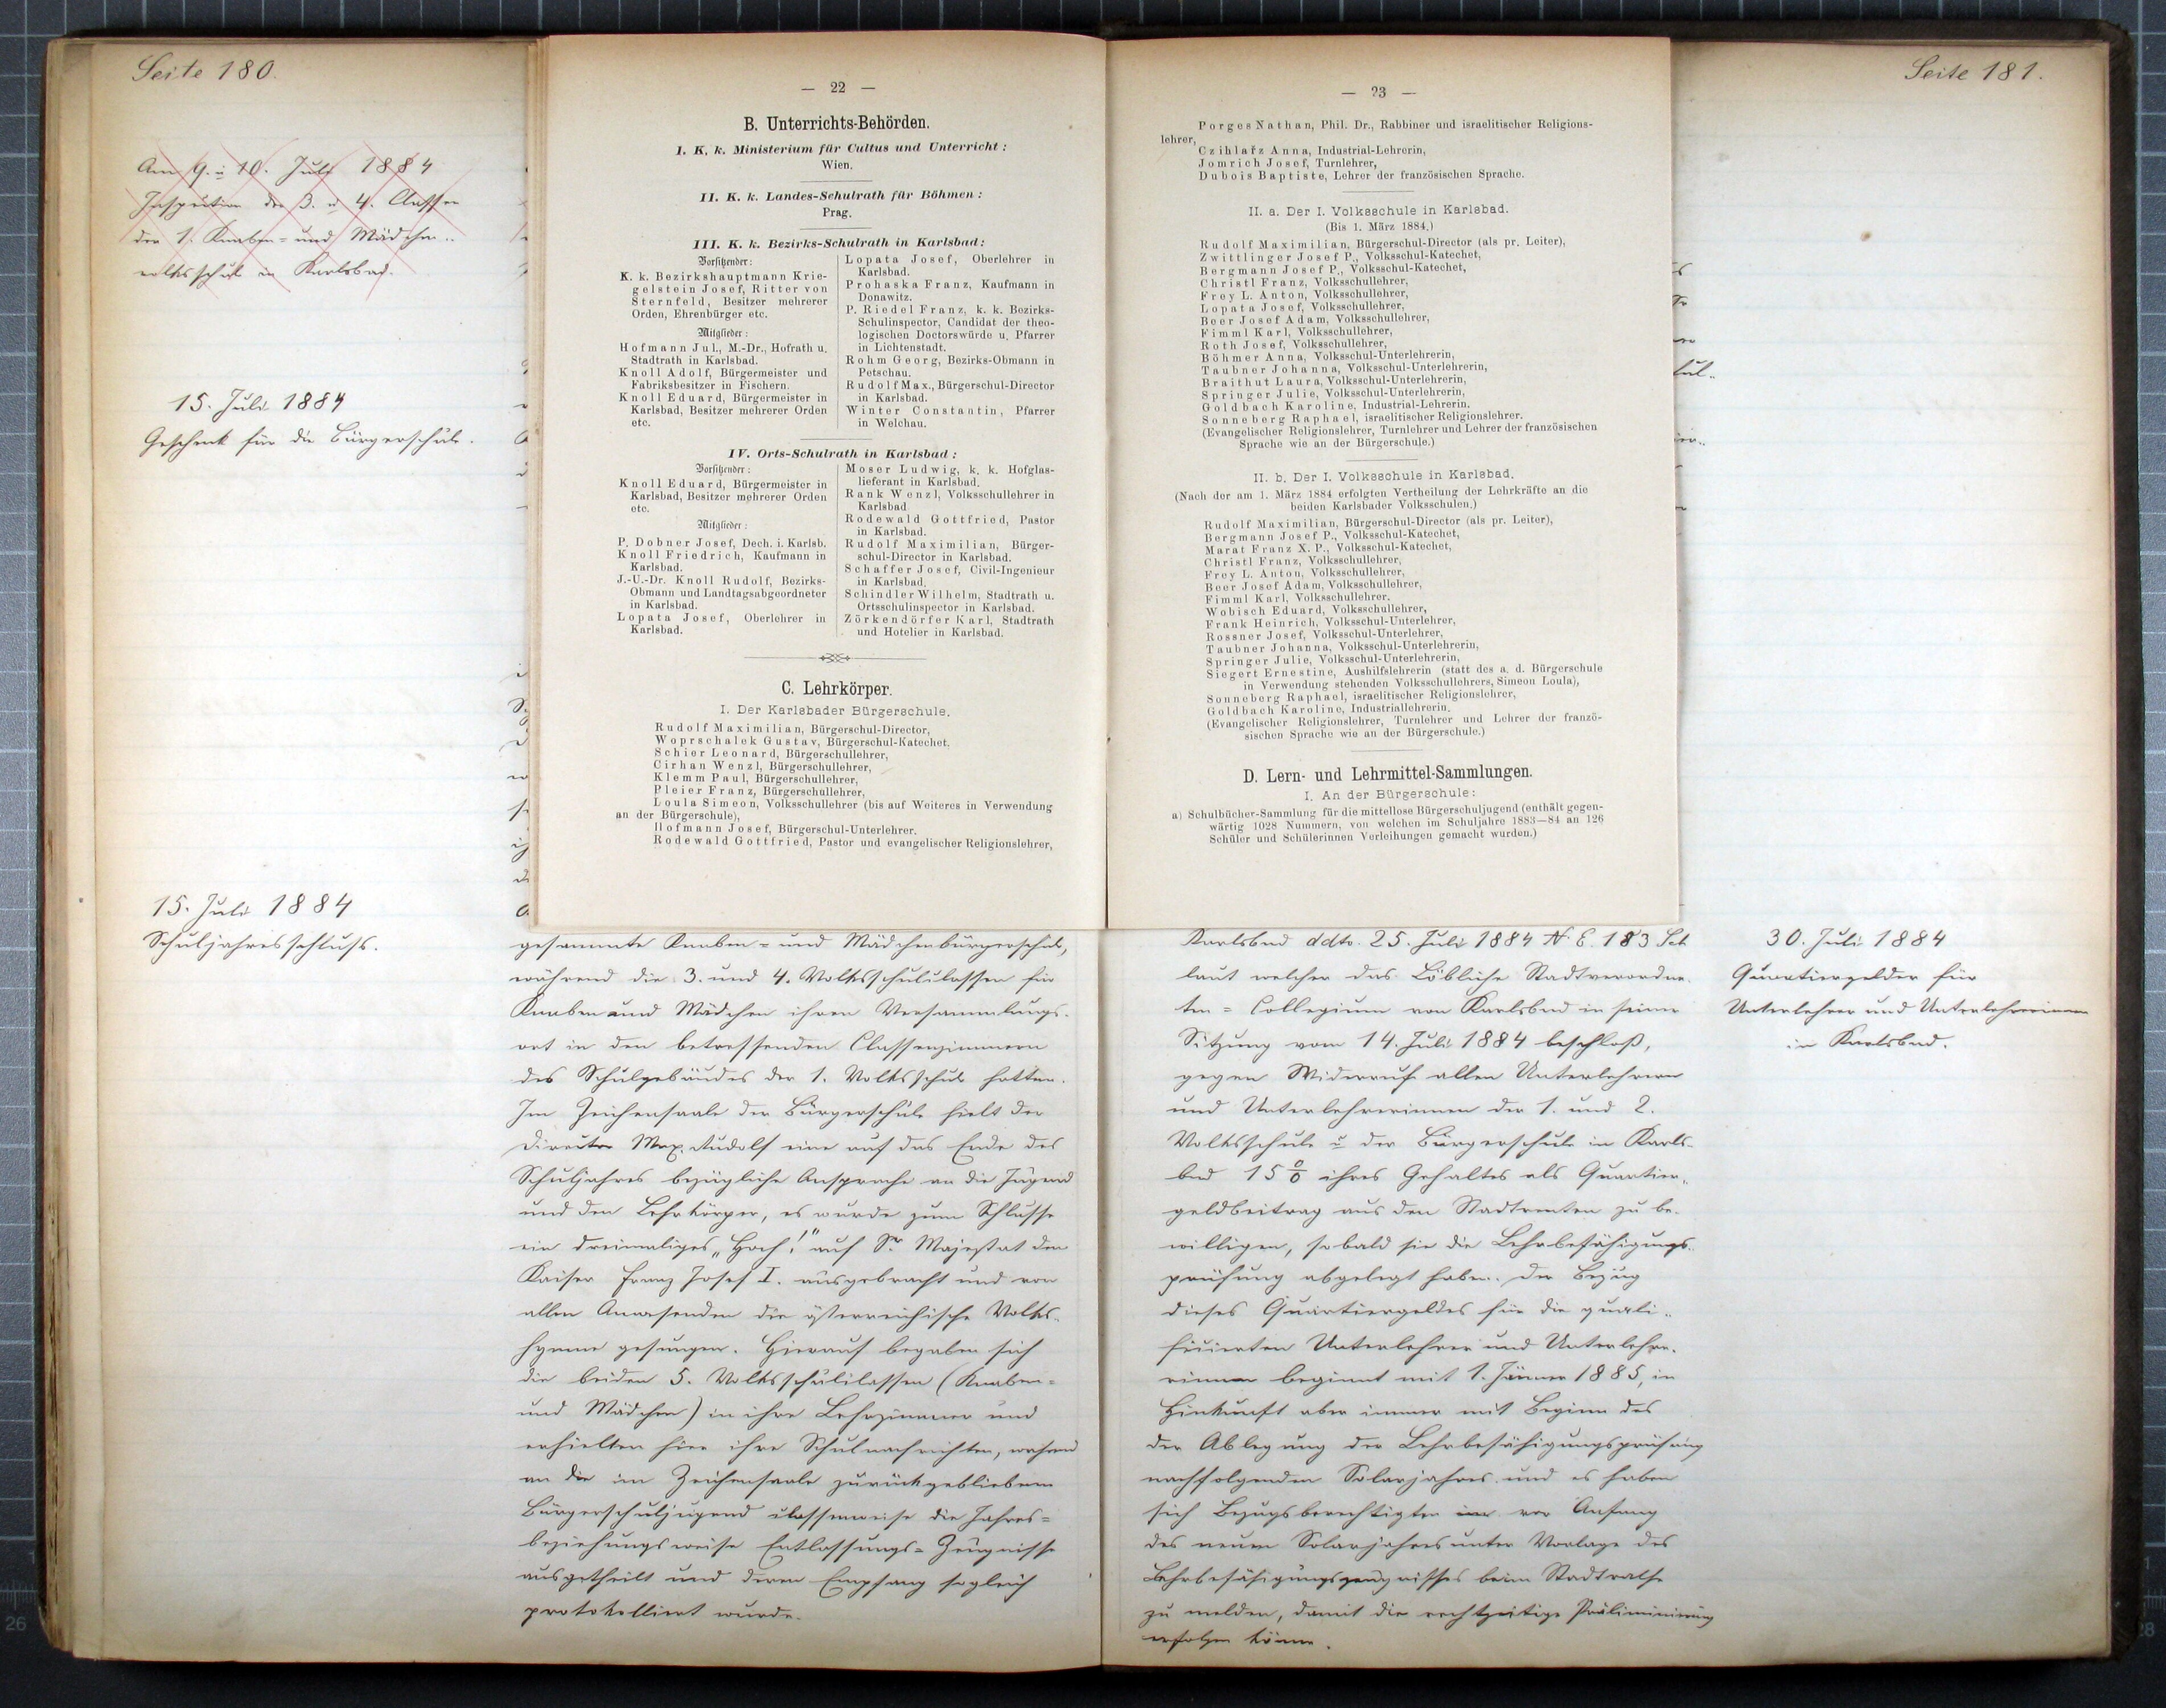 Seite 180.
Am 9. u 10. Juli 1884
Inspection der 3. u 4. Classen
der 1. Knaben- und Mädchen-
volksschule in Karlsbad.
15. Juli 1884
Geschenk für die Bürgerschule.
15. Juli 1884
Schuljahresschluß.
— 22 —
B. Unterrichts-Behörden.
I. K. k. Ministerium für Cultus und Unterricht:
Wien.
II. K. k. Landes-Schulrath für Böhmen:
Prag.
III. K. k. Bezirks-Schulrath in Karlsbad:
Vorsitzender:
K. k. Bezirkshauptmann Krie-
gelstein Josef, Ritter von
Sternfeld, Besitzer mehrerer
Orden, Ehrenbürger etc.
Mitglieder:
Hofmann Jul., M.-Dr., Hofrath u.
Stadtrath in Karlsbad.
Knoll Adolf, Bürgermeister und
Fabriksbesitzer in Fischern.
Knoll Eduard, Bürgermeister in
Karlsbad, Besitzer mehrerer Orden
etc.
Lopata Josef, Oberlehrer in
Karlsbad.
Prohaska Franz, Kaufmann in
Donawitz.
P. Riedel Franz, k. k. Bezirks-
Schulinspector, Candidat der theo-
logischen Doctorswürde u. Pfarrer
in Lichtenstadt.
Rohm Georg, Bezirks-Obmann in
Petschau.
Rudolf Max., Bürgerschul-Director
in Karlsbad.
Winter Constantin, Pfarrer
in Welchau.
IV. Orts-Schulrath in Karlsbad:
Vorsitzender:
Knoll Eduard, Bürgermeister in
Karlsbad, Besitzer mehrerer Orden
etc.
Mitglieder:
P. Dobner Josef, Dech. i. Karlsb.
Knoll Friedrich, Kaufmann in
Karlsbad.
J.-U.-Dr. Knoll Rudolf, Bezirks-
Obmann und Landtagsabgeordneter
in Karlsbad.
Lopata Josef, Oberlehrer in
Karlsbad.
Moser Ludwig, k. k. Hofglas-
lieferant in Karlsbad.
Rank Wenzl, Volksschullehrer in
Karlsbad
Rodewald Gottfried, Pastor
in Karlsbad.
Rudolf Maximilian, Bürger-
schul-Director in Karlsbad.
Schaffer Josef, Civil-Ingenieur
in Karlsbad.
Schindler Wilhelm, Stadtrath u.
Ortsschulinspector in Karlsbad.
Zörkendörfer Karl, Stadtrath
und Hotelier in Karlsbad.
C. Lehrkörper.
I. Der Karlsbader Bürgerschule.
Rudolf Maximilian, Bürgerschul-Director,
Woprschalek Gustav, Bürgerschul-Katechet.
Schier Leonard, Bürgerschullehrer,
Cirhan Wenzl, Bürgerschullehrer,
Klemm Paul, Bürgerschullehrer,
Pleier Franz, Bürgerschullehrer,
Loula Simeon, Volksschullehrer (bis auf Weiteres in Verwendung
an der Bürgerschule),
Hofmann Josef, Bürgerschul-Unterlehrer.
Rodewald Gottfried, Pastor und evangelischer Religionslehrer,
gesammte Knaben- und Mädchenbürgerschule,
während die 3. und 4. Volksschulclassen für
Knaben und Mädchen ihren Versammlungs-
ort in den betreffenden Classenzimmern
des Schulgebäudes der 1. Volksschule hatten.
Im Zeichensaale der Bürgerschule hielt der
Director Max. Rudolf eine auf das Ende des
Schuljahres bezügliche Ansprache an die Jugend
und den Lehrkörper, es wurde zum Schlusse
ein dreimaliges „Hoch!" auf Sr. Majestät den
Kaiser Franz Josef I. ausgebracht und von
allen Anwesenden die österreichische Volks-
hymne gesungen. Hierauf begaben sich
die beiden 5. Volksschulclassen (Knaben-
und Mädchen) in ihre Lehrzimmer und
erhielten hier ihre Schulnachrichten, während
an die im Zeichensaale zurückgebliebene
Bürgerschuljugend classenweise die Jahres-
beziehungsweise Entlassungs-Zeugnisse
ausgetheilt und deren Empfang sogleich
protokolliert wurde.
Seite 181.
— 23 —
Porges Nathan, Phil. Dr., Rabbiner und israelitischer Religions-
lehrer,
Czihlařz Anna, Industrial-Lehrerin,
Jomrich Josef, Turnlehrer,
Dubois Baptiste, Lehrer der französischen Sprache.
II. a. Der I. Volksschule in Karlsbad.
(Bis 1. März 1884.)
Rudolf Maximilian, Bürgerschul-Director (als pr. Leiter),
Zwittlinger Josef P., Volksschul-Katechet,
Bergmann Josef P., Volksschul-Katechet,
Christl Franz, Volksschullehrer,
Frey L. Anton, Volksschullehrer,
Lopata Josef, Volksschullehrer,
Beer Josef Adam, Volksschullehrer,
Fimml Karl, Volksschullehrer,
Roth Josef, Volksschullehrer,
Böhmer Anna, Volksschul-Unterlehrerin,
Taubner Johanna, Volksschul-Unterlehrerin,
Braithut Laura, Volksschul-Unterlehrerin,
Springer Julie, Volksschul-Unterlehrerin,
Goldbach Karoline, Industrial-Lehrerin.
Sonneberg Raphael, israelitischer Religionslehrer.
(Evangelischer Religionslehrer, Turnlehrer und Lehrer der französischen
Sprache wie an der Bürgerschule.)
II. b. Der I. Volksschule in Karlsbad.
(Nach der am 1. März 1884 erfolgten Vertheilung der Lehrkräfte an die
beiden Karlsbader Volksschulen.)
Rudolf Maximilian, Bürgerschul-Director (als pr. Leiter),
Bergmann Josef P., Volksschul-Katechet,
Marat Franz X. P., Volksschul-Katechet,
Christl Franz, Volksschullehrer,
Frey L. Anton, Volksschullehrer,
Beer Josef Adam, Volksschullehrer,
Fimml Karl, Volksschullehrer.
Wobisch Eduard, Volksschullehrer,
Frank Heinrich, Volksschul-Unterlehrer,
Rossner Josef, Volksschul-Unterlehrer,
Taubner Johanna, Volksschul-Unterlehrerin,
Springer Julie, Volksschul-Unterlehrerin,
Siegert Ernestine, Aushilfslehrerin (statt des a. d. Bürgerschule
in Verwendung stehenden Volksschullehrers, Simeon Loula),
Sonneberg Raphael, israelitischer Religionslehrer,
Goldbach Karoline, Industriallehrerin.
(Evangelischer Religionslehrer, Turnlehrer und Lehrer der franzö-
sischen Sprache wie an der Bürgerschule.)
D. Lern- und Lehrmittel-Sammlungen.
I. An der Bürgerschule:
a) Schulbücher-Sammlung für die mittellose Bürgerschuljugend (enthält gegen-
wärtig 1028 Nummern, von welchen im Schuljahre 1883—84 an 126
Schüler und Schülerinnen Verleihungen gemacht wurden.)
Karlsbad ddto. 25. Juli 1884 N. E. 183 Sch
laut welcher das Löbliche Stadtverordne-
ten-Collegium von Karlsbad in seiner
Sitzung vom 14. Juli 1884 beschloß,
gegen Widerruf allen Unterlehrern
und Unterlehrerinnen der 1. und 2.
Volksschule u der Bürgerschule in Karls-
bad 15 % ihres Gehaltes als Quartier-
geldbeitrag aus den Stadtrenten zu be-
willigen, sobald sie die Lehrbefähigungs-
prüfung abgelegt haben. Der Bezug
dieses Quartiergeldes für die quali-
ficierten Unterlehrer und Unterlehre-
rinnen beginnt mit 1. Jänner 1885, in
Hinkunft aber immer mit Beginn des
der Ablegung der Lehrbefähigungsprüfung
nachfolgenden Solarjahres und es haben
sich Bezugsberechtigten vor Anfang
des neuen Solarjahres unter Vorlage des
Lehrbefähigungszeugnisses beim Stadtrathe
zu melden, damit die rechtzeitige Präliminierung
erfolgen könne.
30. Juli 1884
Quartiergelder für
Unterlehrer und Unterlehrerinnen
in Karlsbad.